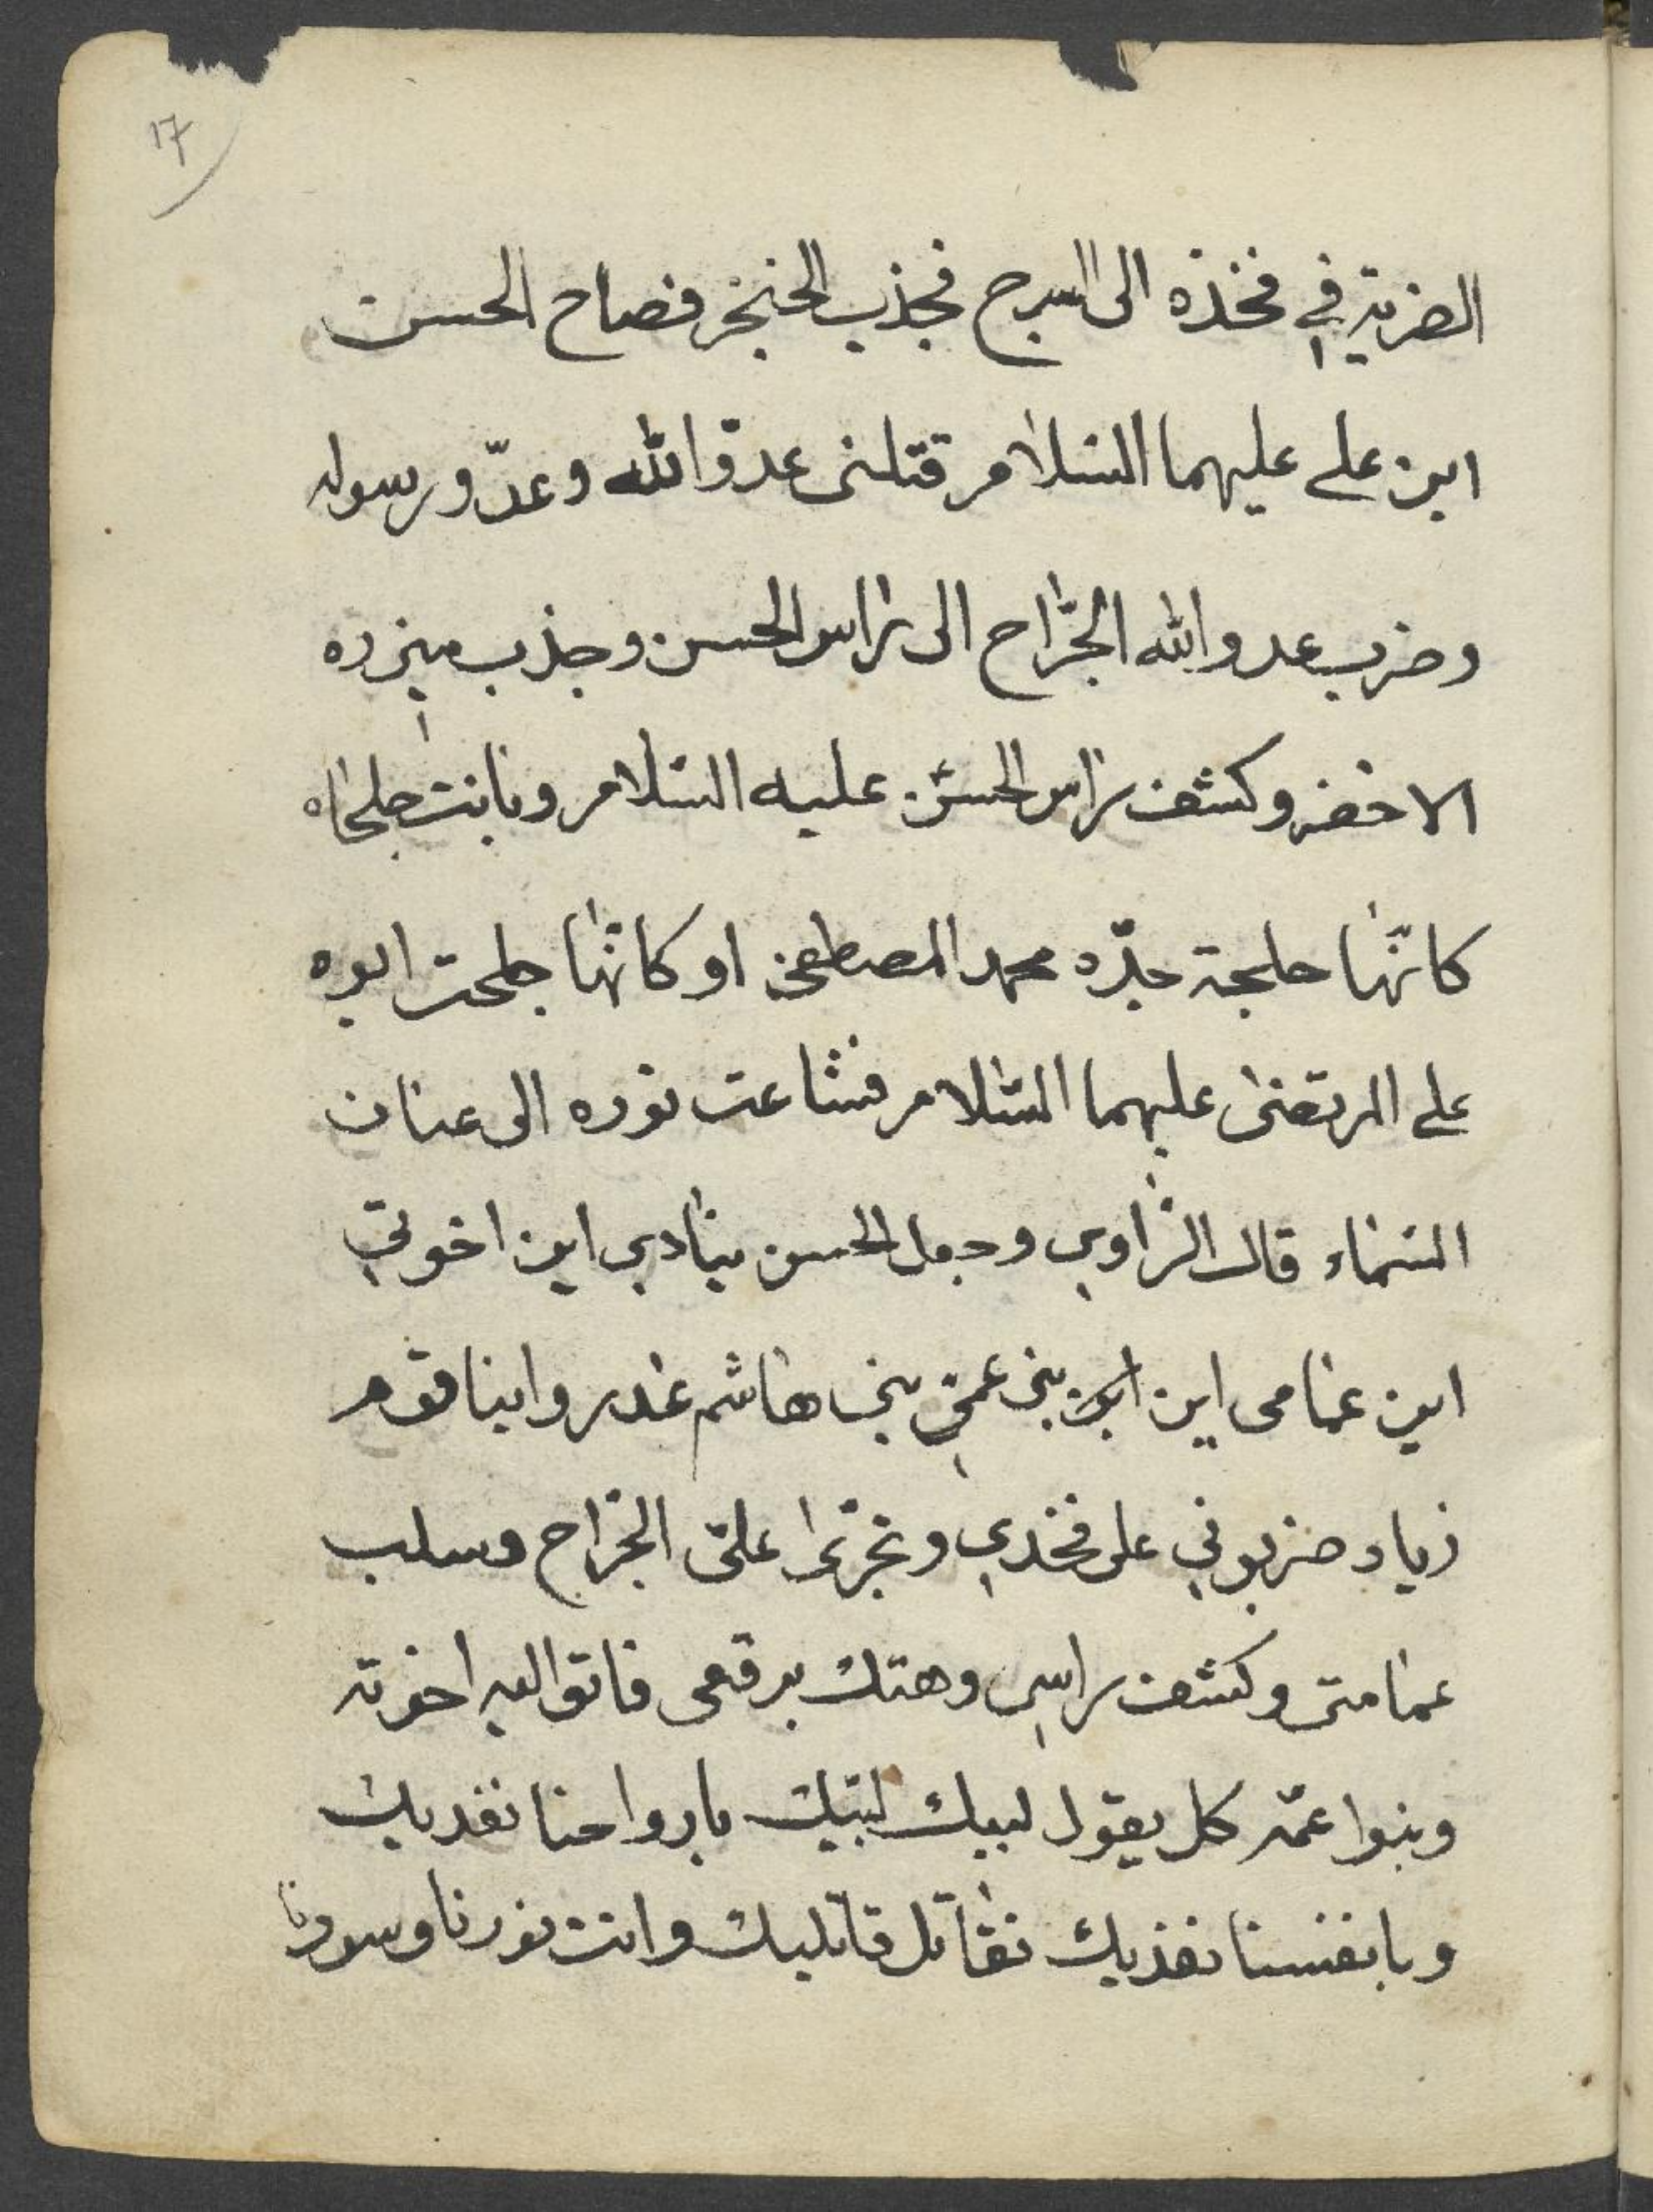 17
الضربة في فخذه الى السرج فجذب الخنجر فصاح الحسن
ابن علي عليهما السلام قتلنى عدوّ الله وعدّو رسوله
وضرب عدو الله الجرّاح الى راس الحسن وجذب ميزره
الاخضر وكشف راس الحسن عليه السّلام وبانت جلحاه
كانّها جلحة جدّه محمد المصطفى او كانّها جلحت ابوه
علي المرتضى عليهما السّلام فشاعت نوره الى عنان
السّماء قال الرّاوي وجعل الحسن ينادي اين اخوتي
اين عمامى اين بني عمّي بني هاشم غدروا بنا قوم
زياد ضربوني على فخدي وتجرّئوا علىّ الجرّاح وسلب
عمامتى وكشف راسي وهتك برقعى فاتو اليه اخوته
وبنوا عمّه كل يقول لبيك لبّيك بارواحنا نفديك
وبانفسنا نفذيك نقاتل قاتليك وانت نورنا وسورنا